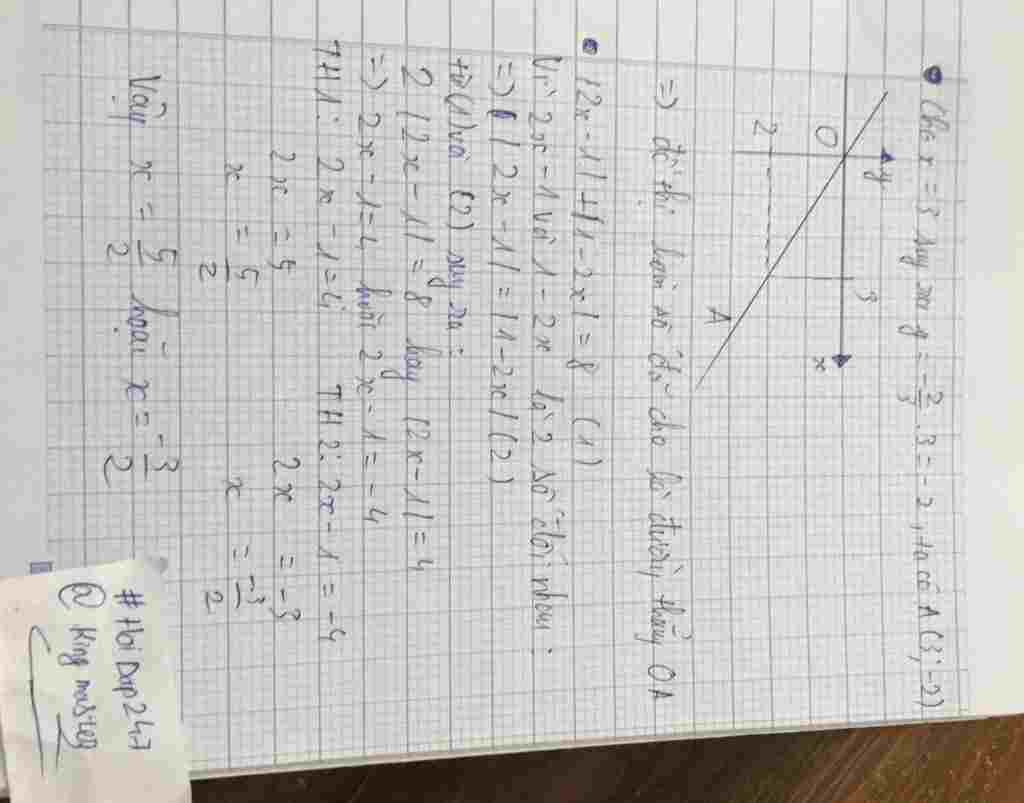 Cho x = 3 suy ra y = -2/3 . 3 = -2, ta có A(3; -2)
y
O
3
x
2
A
=> đồ thị hàm số đã cho là đường thẳng OA
|2x - 1| + |1 - 2x| = 8 (1)
Vì 2x - 1 và 1 - 2x là 2 số đối nhau:
=> |2x - 1| = |1 - 2x| (2)
từ (1) và (2) suy ra:
2|2x - 1| = 8 hay |2x - 1| = 4
=> 2x - 1 = 4 hoặc 2x - 1 = -4
TH1: 2x - 1 = 4 TH2: 2x - 1 = -4
2x = 5 2x = -3
x = 5/2 x = -3/2
Vậy x = 5/2 hoặc x = -3/2
#HoiDap247
@ King master